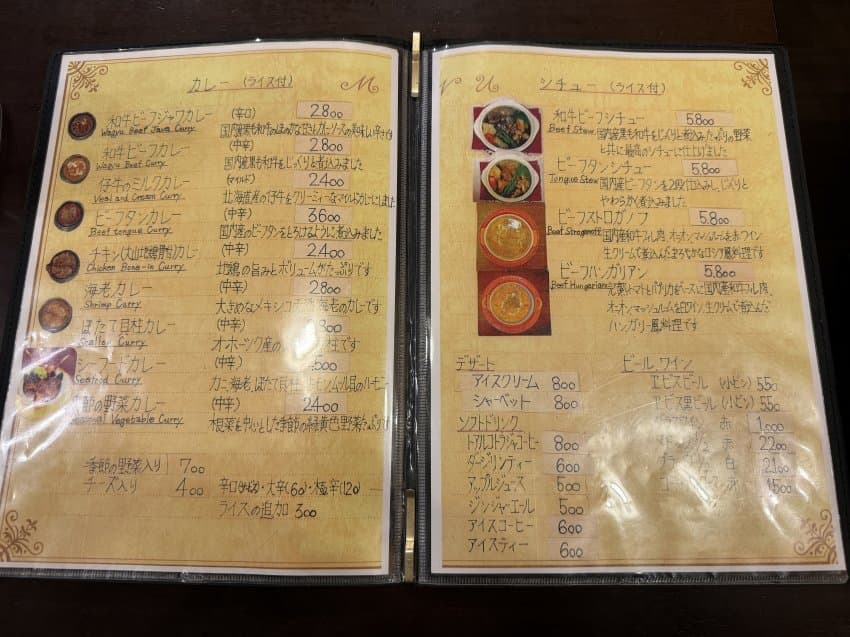 カレー (ライス付)
和牛ビーフジャワカレー (辛口) 2.800
Wagyu Beef Java Curry
和牛ビーフカレー (中辛) 2.800
Wagyu Beef Curry 国内産黒毛和牛をじっくりと煮込みました
仔牛のミルクカレー (マイルド) 2.400
Veal and Cream Curry 北海道産の仔牛をクリーミィーなマイルドカレーにしました
ビーフタンカレー (中辛) 3.600
Beef tongue Curry 国内産のビーフタンをとろけるように煮込みました
チキン(大山地鶏骨付)カレー (中辛) 2.400
Chicken Bone-in Curry 地鶏の旨みとボリュームがたっぷりです
海老カレー (中辛) 2.800
Shrimp Curry 大きめなメキシコ
ほたて貝柱カレー (中辛)
Scallop Curry オホーツク産の
シーフードカレー (中辛)
Seafood Curry カニ、海老、ほたて貝柱
節の野菜カレー (中辛) 2.400
Vegetable Curry 根菜を中心とした季節の緑黄色野菜たっぷりです
季節の野菜入り 700
チーズ入り 400
大辛(60)・極辛(120)
ライスの追加 300
M
N U
シチュー (ライス付)
和牛ビーフシチュー 5.800
Beef Stew 国内産黒毛和牛をじっくりと煮込みたっぷりの野菜
と共に最高のシチューに仕上げました
ビーフタンシチュー 5.800
Tongue Stew 国内産ビーフタンを2段仕込みし、じっくりと
やわらかく煮込みました
ビーフストロガノフ 5.800
Beef Stroganoff 国内産和牛フィレ肉、オニオン、マッシュルームを赤ワイン
生クリームで煮込んだまろやかなロシア風料理です
ビーフハンガリアン 5.800
Beef Hungarian
オニオン、マッシュルームを白ワイン、生クリームで煮込んだ
ハンガリー風料理です
デザート
アイスクリーム 800
シャーベット 800
ソフトドリンク
トアルコトラジャコーヒー 800
ダージリンティー 600
アップルジュース 500
ジンジャーエール 500
アイスコーヒー 600
アイスティー 600
ビール、ワイン
ヱビスビール (小ビン) 550
ヱビス黒ビール (小ビン) 550
赤 1.000
赤 2200
白 2100
1500